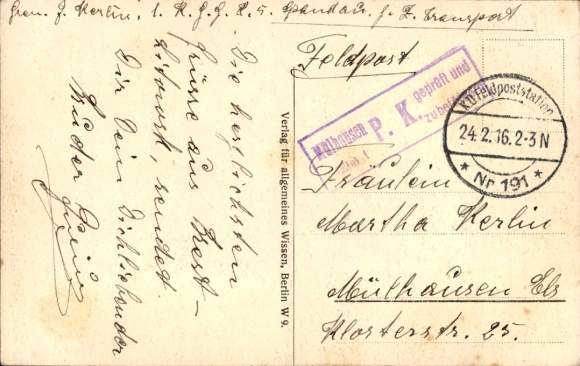 Gren. J. Kerlin, 1. K. G. G. R. 5. Spandau, z. Z. Transport
Die herzlichsten
Grüsse aus Brest-
Litowsk sendet
Dir Dein Dichliebender
Bruder
Verlag für allgemeines Wissen, Berlin W 9.
Feldpost
Mülhausen
P. K.
geprüft und
K.D. Feldpoststation
24.2.16.2-3N
* Nr 191 *
Fräulein
Martha Kerlin
Mülhausen Els
Klosterstr. 25.